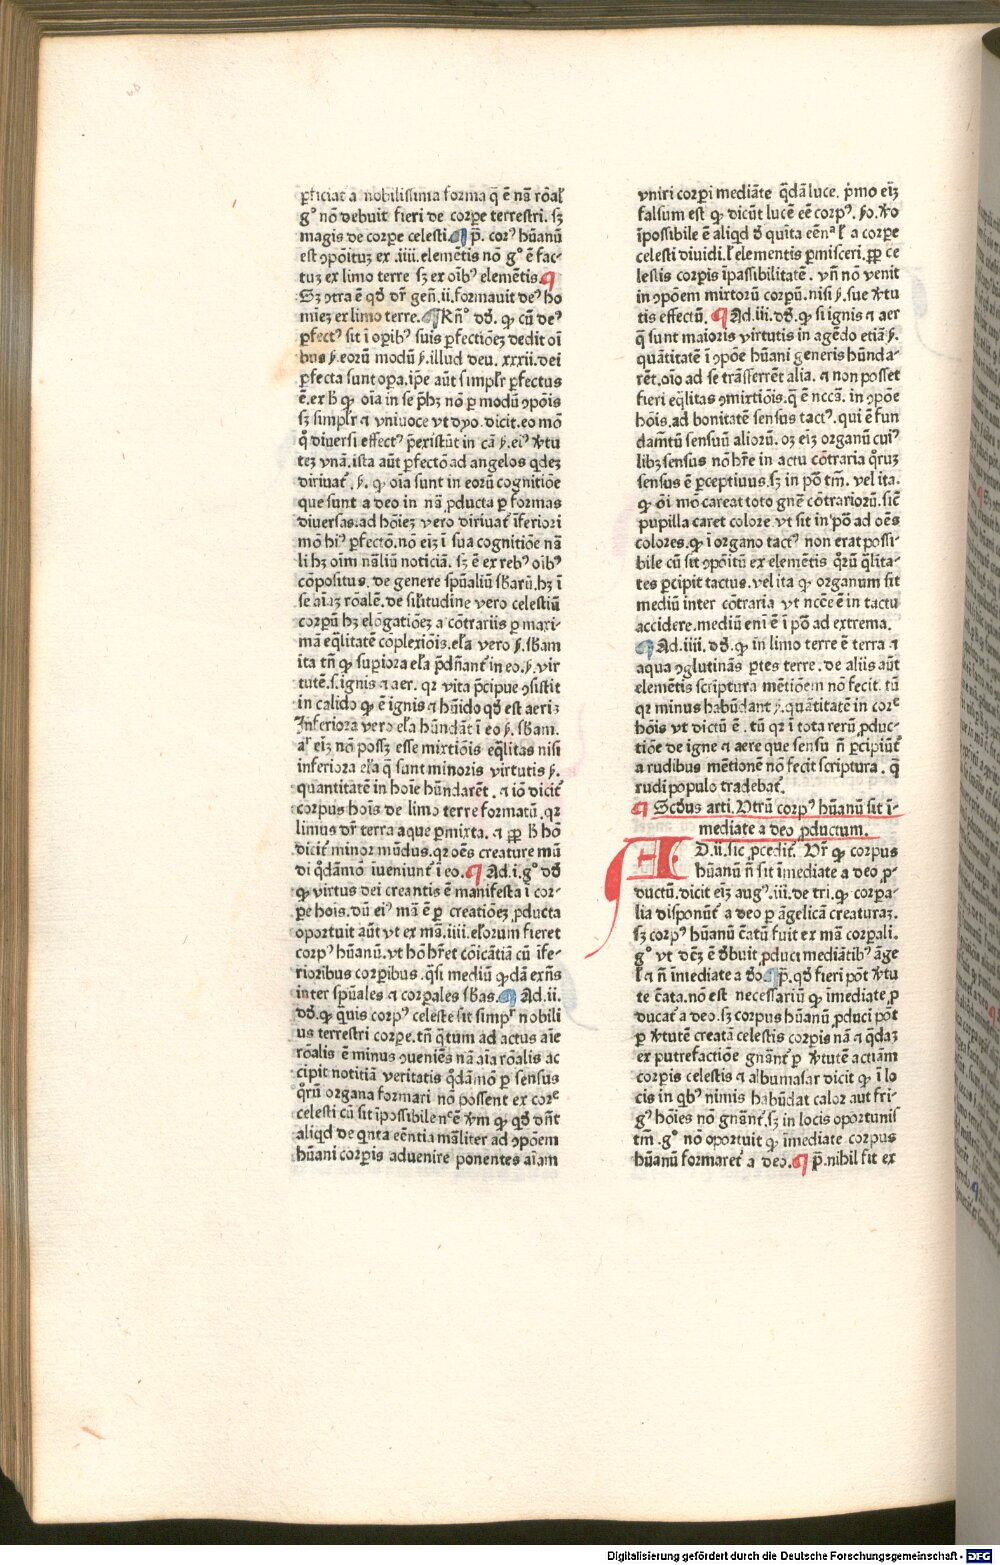 ꝑficiat᷑ a nobilissima forma q̄ ē nā rōal᷑
gͦ nō debuit fieri de corꝑe terrestri. sꝫ
magis de corꝑe celesti. ¶ p̄. corꝰ hūanū
est ꝯpoituꝫ ex .iiii. elemētis nō gͦ ē fac-
tuꝫ ex limo terre sꝫ ex oībꝰ elemētis. ¶
Sꝫ ꝯtra ē qd̓ dr̄ gen̄. ii. formauit deꝰ ho
mieꝫ ex limo terre. ¶ Rn̄ͦ dd̓. ꝙ cū deꝰ
ꝑfectꝰ sit ī oꝑibꝰ suis ꝑfectiōeꝫ dedit oī
bus ẜ. eorū modū ẜ. illud deu. xxxii. dei
ꝑfecta sunt oꝑa. ip̄e aūt simpl᷑r ꝑfectus
ē. ex h̓ ꝙ oīa in se p̄hꝫ nō ꝑ modū ꝯpōis
sꝫ simpl᷑r ⁊ vniuoce vt dyo. dicit. eo mō
q̊ diuersi effectꝰ p̄existūt in cā ẜ. eiꝰ v̓tu
teꝫ vnā. ista aūt ꝑfectō ad angelos qdeꝫ
diriuat᷑. ẜ. ꝙ oīa sunt in eorū cognitiōe
que sunt a deo in nā ꝓducta ꝑ formas
diuersas. ad hōieꝫ vero diriuat᷑ īferiori
mō hiꝰ ꝑfectō. nō eīꝫ ī sua cognitiōe nā
li hꝫ oīm nāliū noticiā. sꝫ ē ex rebꝰ oībꝰ
cōpositus. de genere spūaliū sb̓arū. hꝫ ī
se aīaꝫ rōalē. de sil᷑itudine vero celestiū
corꝑū hꝫ elōgatiōeꝫ a cōtrariis ꝑ maxi-
mā eq̄litatē cōplexiōis. el᷑a vero ẜ. sb̓am
ita tn̄ ꝙ suꝑiora el᷑a p̄dn̄ant᷑ in eo. ẜ. vir
tutē. s. ignis ⁊ aer. qꝛ vita p̄cipue ꝯsistit
in calido ꝙ ē ignis ⁊ hūido qd̓ est aeriꝫ
Inferiora vero el᷑a hūndāt ī eo ẜ. sb̓am.
al᷑ eīꝫ nō possꝫ esse mixtiōis eq̄litas nisi
inferiora el᷑a q̄ sunt minoris virtutis ẜ.
quantitatē in hoīe hūndarēt. ⁊ iō dicit᷑
corpus hoīs de limo terre formatū. qꝛ
limus dr̄ terra aque ꝑmixta. ⁊ ꝓꝑ h̓ hō
dicit᷑ minor mūdus. qꝛ oēs creature mū
di q̊dāmō iueniunt᷑ ī eo. ¶ Ad .i. gͦ dd̓
ꝙ virtus dei creantis ē manifesta ī cor-
ꝑe hoīs. dū eiꝰ mā ē ꝑ creatiōeꝫ ꝓducta
oportuit aūt vt ex mā. iiii. el᷑orum fieret
corpꝰ hūanū. vt hō hr̄et cōicātiā cū īfe-
rioribus corꝑibus. q̄si mediū q̊dā exn̄s
inter spūales ⁊ corꝑales sb̓as. ¶ Ad .ii.
dd̓. ꝙ q̄uis corpꝰ celeste sit simpl᷑r nobili
us terrestri corꝑe. tn̄ q̄tum ad actus aīe
rōalis ē minus ꝯueniēs nā aīa rōalis ac
cipit notitiā veritatis q̊dāmō ꝑ sensus
q̊rū organa formari nō possent ex corͤ
celesti cū sit īpossibile nͨ ē v̓m ꝙ qd̓ dn̄t
aliqd de qnta eēntia māliter ad ꝯpōem
hūani corꝑis aduenire ponentes aīam
vniri corꝑi mediāte q̄dā luce. p̓mo eīꝫ
falsum est ꝙ dicūt lucē eē corpꝰ. ẜo. v̓o
īpossibile ē aliqd d̓ quīta eēnᵃ l᷑ a corꝑe
celesti diuidi. l᷑ elementis ꝑmisceri. ꝓꝑ ce
lestis corꝑis īpassibilitatē. vn̄ nō venit
in ꝯpōem mixtorū corꝑū. nisi ẜ. sue v̓tu
tis effectū. ¶ Ad .iii. dd̓. ꝙ si ignis ⁊ aer
q̄ sunt maioris virtutis in agēdo etiā ẜ.
quātitatē ī ꝯpōe hūani generis hūnda-
rēt. oīo ad se trāsferrēt alia. ⁊ non posset
fieri eq̄litas ꝯmixtiōis. q̄ ē nccs̄. in ꝯpōe
hōis. ad bonitatē sensus tactꝰ. qui ē fun
damtū sensuū aliorū. oꝫ eīꝫ organū cuiꝰ
libꝫ sensus nō hr̄e in actu cōtraria q̊ruꝫ
sensus ē ꝑceptiuus. sꝫ in pō tm̄. vel ita.
ꝙ oī mō careat toto gn̄e cōtrariorū. sic̄
pupilla caret colore. vt sit in pō ad oēs
colores. ꝙ ī organo tactꝰ non erat possi-
bile cū sit ꝯpōitū ex elemētis q̊rū q̄lita-
tes ꝑcipit tactus. vel ita ꝙ organum sit
mediū inter cōtraria vt nccē ē in tactu
accidere. mediū eni ē ī pō ad extrema.
¶ Ad .iiii. dd̓. ꝙ in limo terre ē terra ⁊
aqua ꝯglutināṡ ꝑtes terre. de aliis aūt
elemētis scriptura mētiōem nō fecit. tū
qꝛ minus habūdant ẜ. quātitatē in corͤ
hōis vt dictū ē. tū qꝛ ī tota rerū ꝓduc-
tiōe de igne ⁊ aere que sensu n̄ ꝑcipiūt᷑
a rudibus mētionē nō fecit scriptura. q̄
rudi populo tradebat᷑.
¶ Scd̓us arti. Vtrū corpꝰ hūanū sit ī-
mediate a deo ꝓductum.
AD .ii. sic ꝓcedit᷑. Vr̄ ꝙ corpus
hūanū n̄ sit īmediate a deo ꝓ-
ductū. dicit eīꝫ augꝰ. iii. de tri. ꝙ corꝑa-
lia disponūt᷑ a deo ꝑ āgelicā creaturaꝫ.
sꝫ corpꝰ hūanū c̄atū fuit ex mā corꝑali.
gͦ vt dc̄ꝫ ē d̓buit ꝓduci mediātibꝰ āge
l᷑ ⁊ n̄ īmediate a d̓o ¶ p̄. qd̓ fieri pōt v̓tu
te c̄ata. nō est necessariū ꝙ īmediate ꝓ
ducat᷑ a deo. sꝫ corpus hūanū ꝓduci pōt
ꝑ v̓tutē creatā celestis corꝑis nā ⁊ q̄daꝫ
ex putrefactiōe gnānt᷑ ꝑ v̓tutē actiām
corꝑis celestis ⁊ albumasar dicit ꝙ ī lo
cis in qbꝰ nimis habūdat calor aut fri-
gꝰ hōies nō gnānt᷑. sꝫ in locis oportunis
tm̄. gͦ nō oportuit ꝙ īmediate corpus
hūanū formaret᷑ a deo. ¶ p̄. nihil fit ex
Digitalisierung gefördert durch die Deutsche Forschungsgemeinschaft - DFG